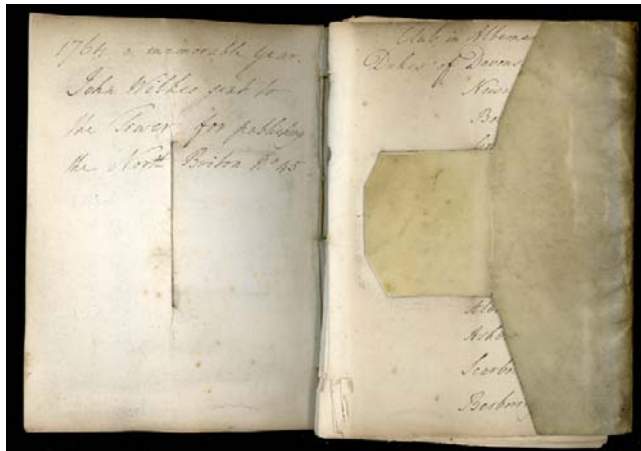 1764 a memorable year.
John Wilkes sent to
the Tower for publishing
the North Briton No 45
Club in Albema
Dukes of Devons
Newc
Bo
Ashb
Scarbro
Besboro